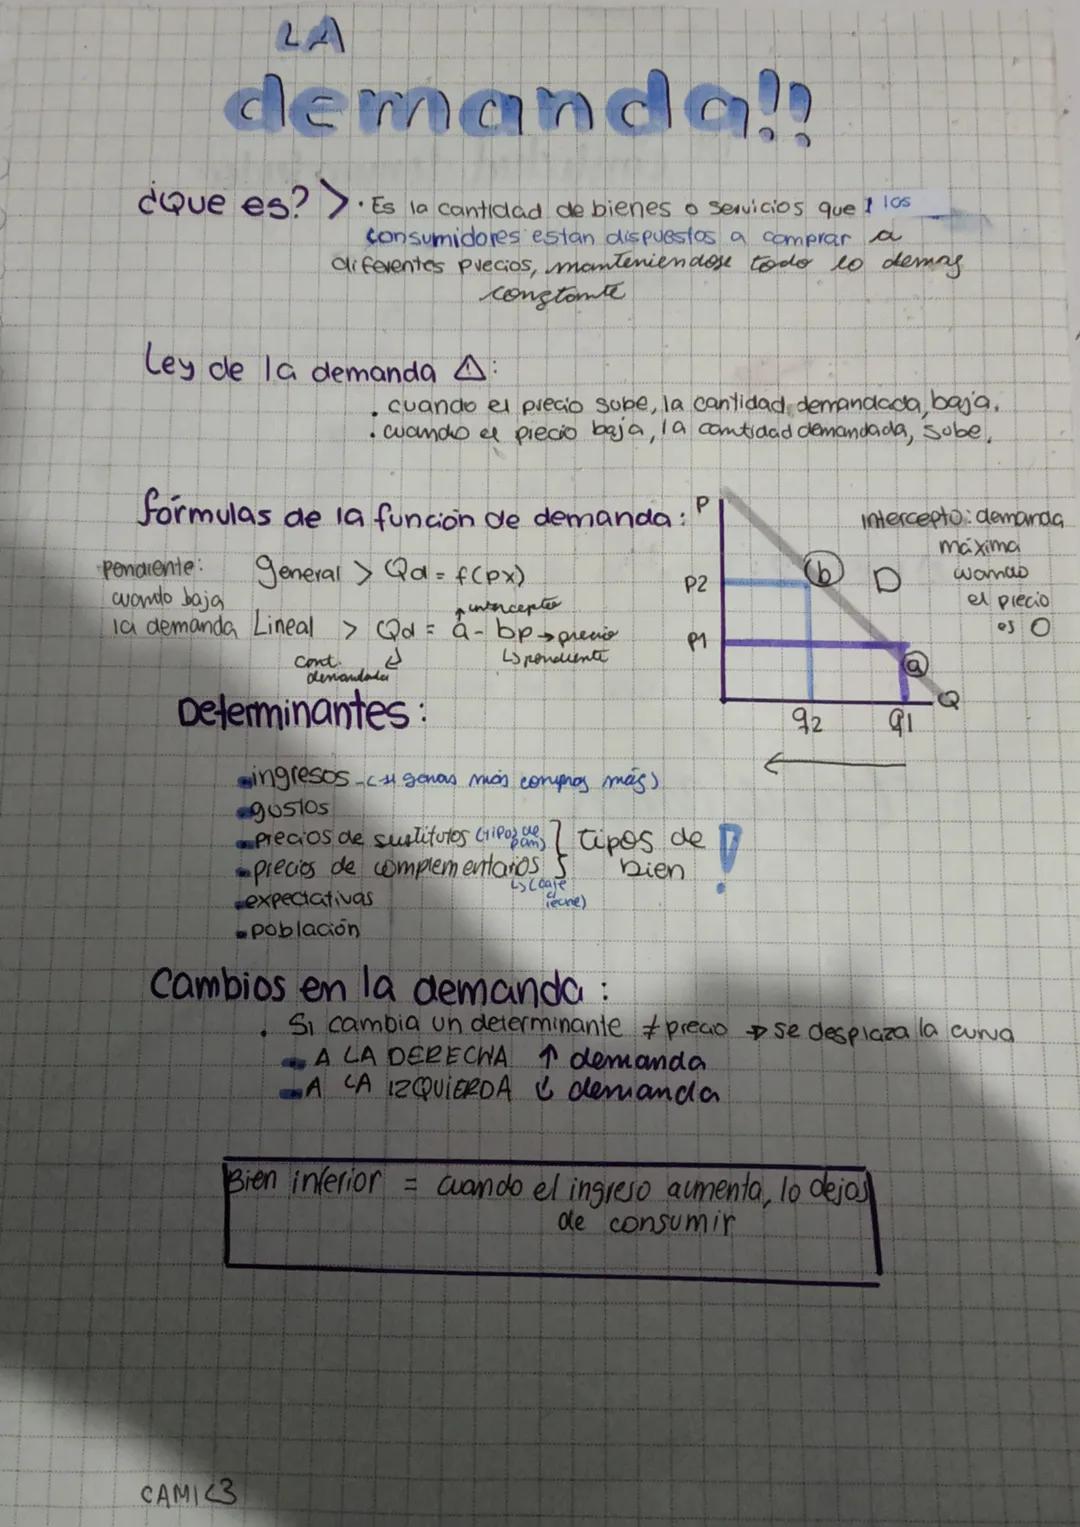 LA
demanda!!
¿Que es? > · Es la cantidad de bienes o servicios que los
consumidores estan dispuestos a comprar a
diferentes precios, manteniendose todo lo demas
constante
Ley de la demanda ⚠:
· cuando el precio sube, la cantidad demandada, baja.
· cuando el precio baja, la cantidad demandada, sube.
fórmulas de la función de demanda:
pendiente:
cuando baja
la demanda
general > Qd = f(px)
↑ intercepto
Lineal > Qd = a - bp → precio
↳ pendiente
cant.
demandada
P
P2
P1
b
D
a
Q
q2
q1
←
intercepto: demanda
máxima
cuando
el precio
es 0
Determinantes:
- ingresos - (si ganas más compras más)
- gustos
- precios de sustitutos (tipos de pan)
- precios de complementarios
↳ (cafe c/ leche)
} tipos de
bien !
- expectativas
- población
Cambios en la demanda:
· Si cambia un determinante ≠ precio → se desplaza la curva
- A LA DERECHA ↑ demanda
- A LA IZQUIERDA ↓ demanda
Bien inferior = cuando el ingreso aumenta, lo dejas
de consumir
CAMI<3